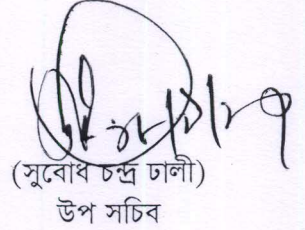 (সুবোধ চন্দ্র ঢালী)
উপ সচিব